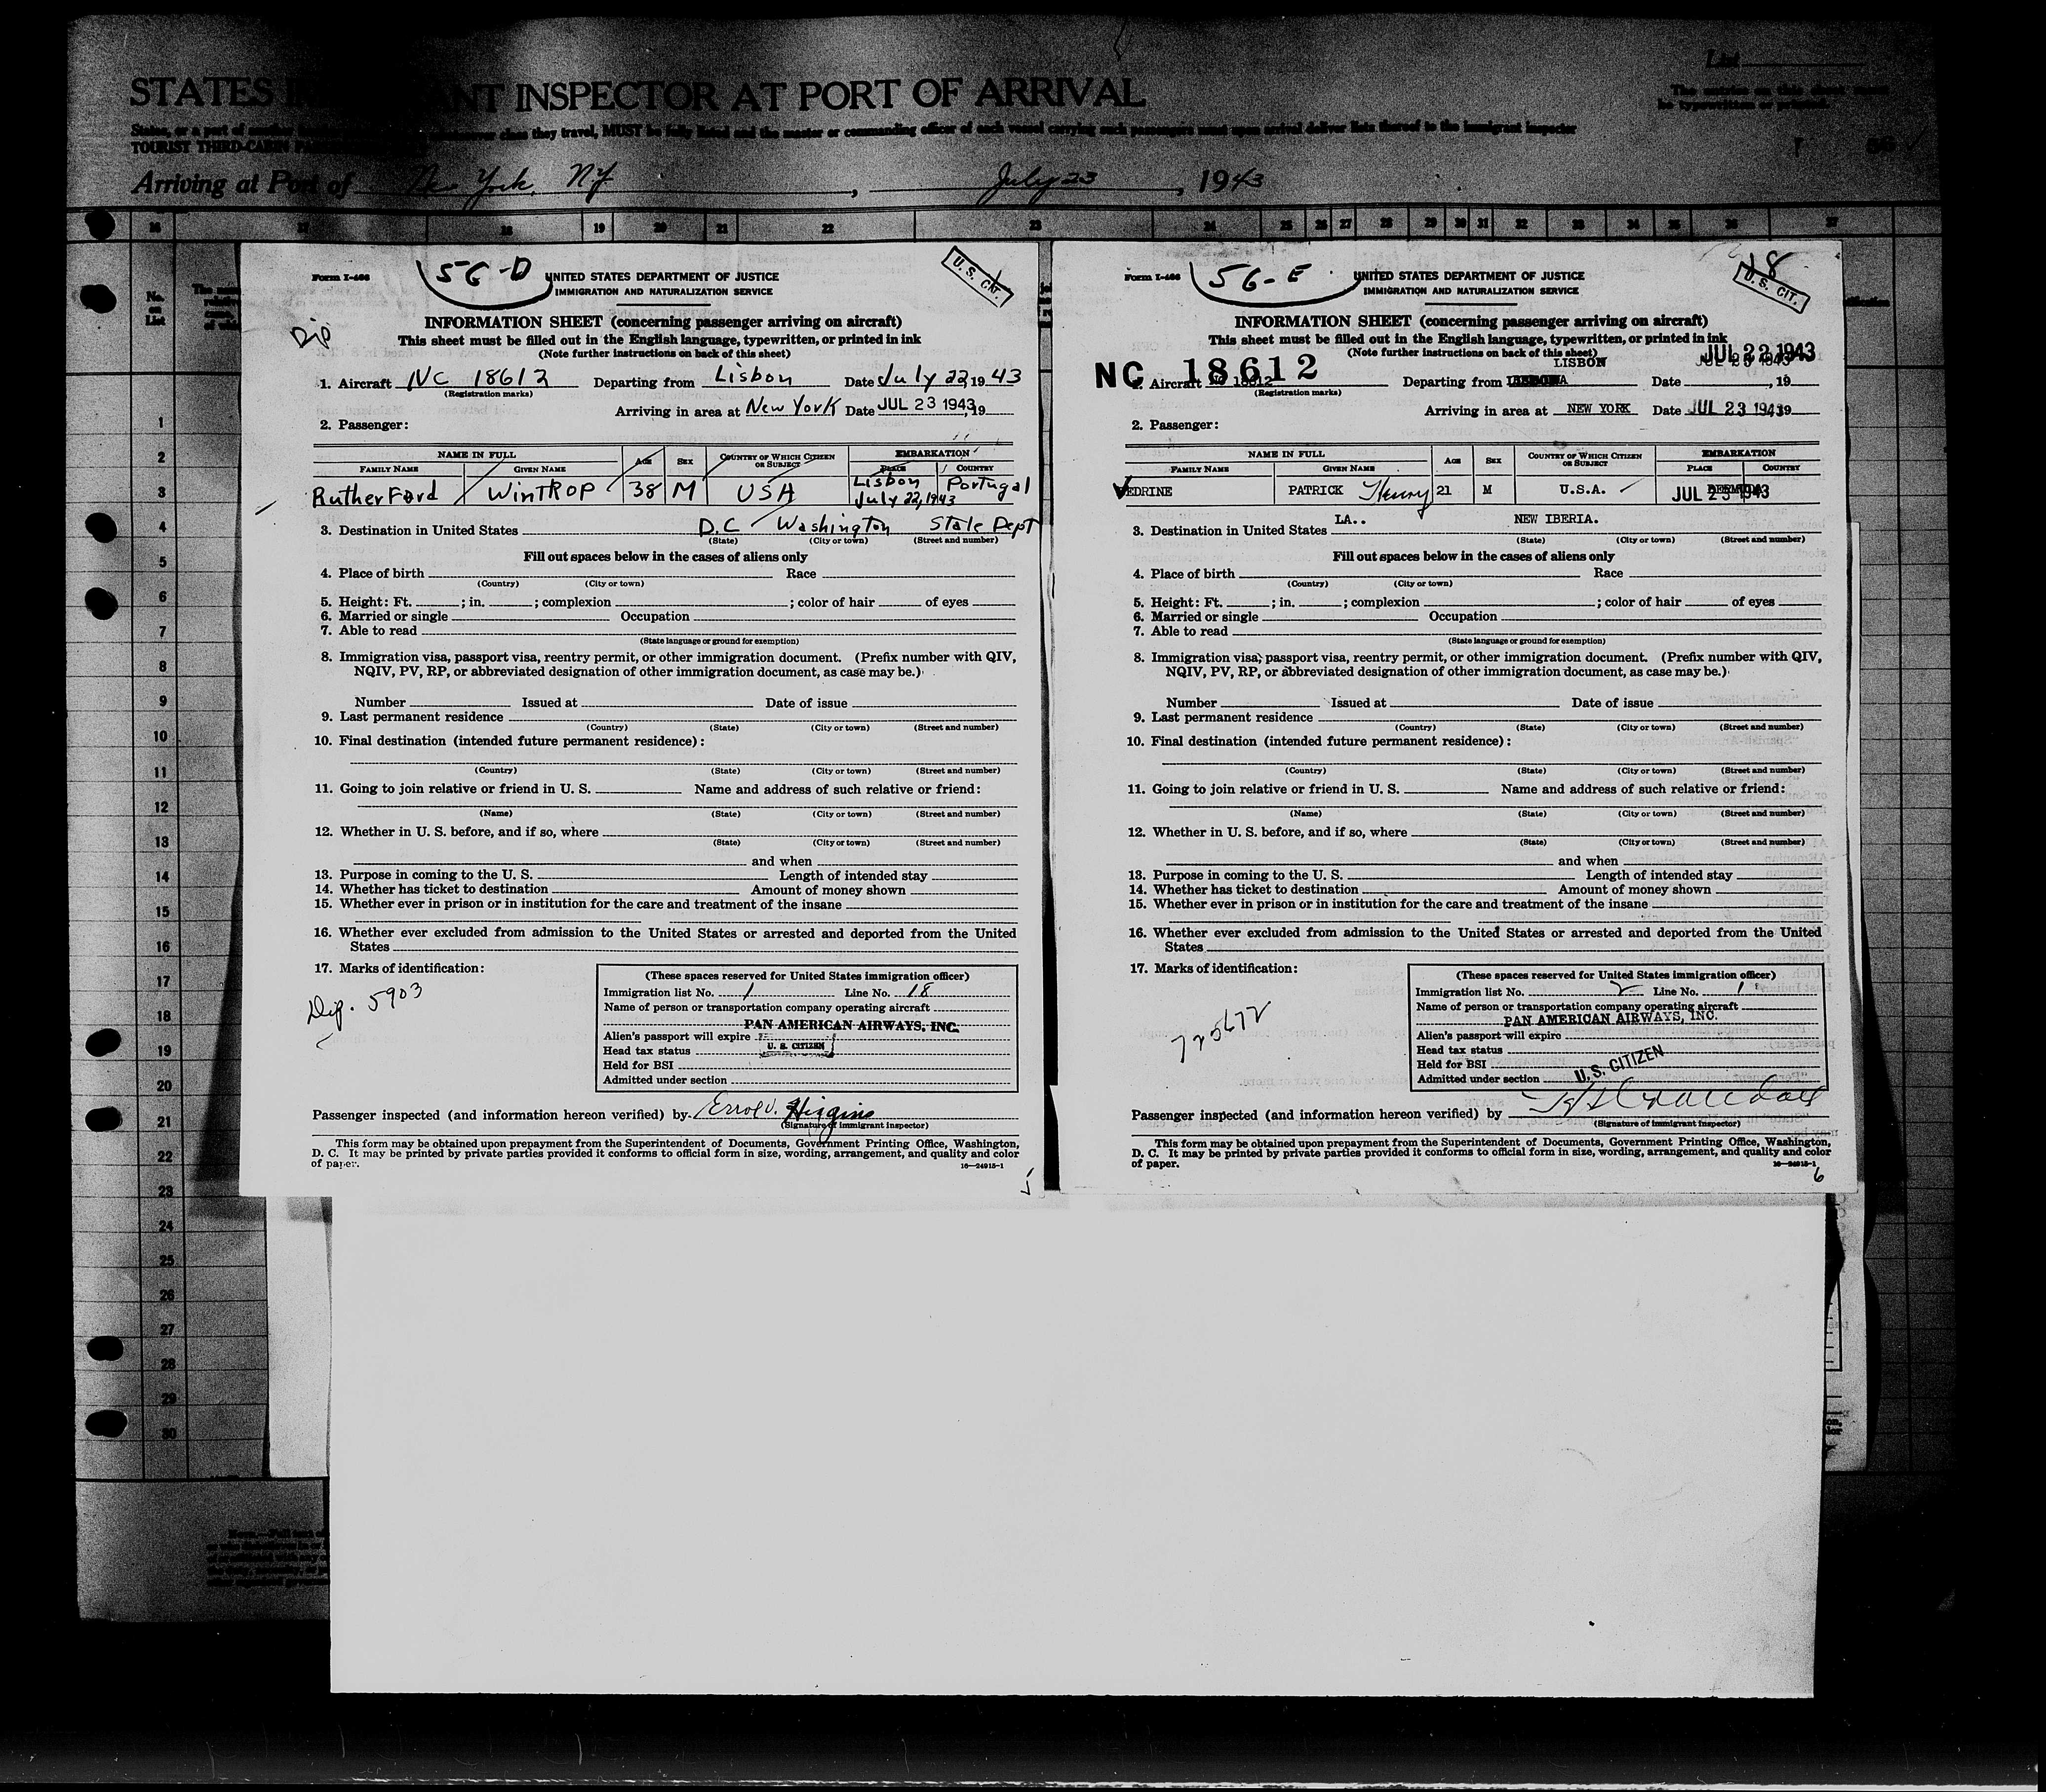 List
STATES IMMIGRANT INSPECTOR AT PORT OF ARRIVAL
whatever class they travel, MUST be fully listed and the master or commanding officer of each vessel carrying such passengers must upon arrival deliver lists thereof to the immigrant inspector
TOURIST THIRD-CABIN
Arriving at Port of New York, NY, July 23, 1943
16 17 18 19 20 21 22 23 24 25 26 27 28 29 30 31 32 33 34 35 36 37
No. on List
1
2
3
4
5
6
7
8
9
10
11
12
13
14
15
16
17
18
19
20
21
22
23
24
25
26
27
28
29
30
Form I-466
56-D
UNITED STATES DEPARTMENT OF JUSTICE
IMMIGRATION AND NATURALIZATION SERVICE
U. S. CIT.
Dip
INFORMATION SHEET (concerning passenger arriving on aircraft)
This sheet must be filled out in the English language, typewritten, or printed in ink
(Note further instructions on back of this sheet)
1. Aircraft NC 18612 Departing from Lisbon Date July 22, 1943
(Registration marks)
Arriving in area at New York Date JUL 23 1943, 19
2. Passenger:
NAME IN FULL AGE SEX COUNTRY OF WHICH CITIZEN OR SUBJECT EMBARKATION
FAMILY NAME GIVEN NAME PLACE COUNTRY
RutherFord WINTROP 38 M USA Lisbon Portugal
July 22, 1943
3. Destination in United States D.C Washington State Dept
(State) (City or town) (Street and number)
Fill out spaces below in the cases of aliens only
4. Place of birth Race
(Country) (City or town)
5. Height: Ft. ; in. ; complexion ; color of hair of eyes
6. Married or single Occupation
7. Able to read
(State language or ground for exemption)
8. Immigration visa, passport visa, reentry permit, or other immigration document. (Prefix number with QIV,
NQIV, PV, RP, or abbreviated designation of other immigration document, as case may be.)
Number Issued at Date of issue
9. Last permanent residence
(Country) (State) (City or town) (Street and number)
10. Final destination (intended future permanent residence):
(Country) (State) (City or town) (Street and number)
11. Going to join relative or friend in U. S. Name and address of such relative or friend:
(Name) (State) (City or town) (Street and number)
12. Whether in U. S. before, and if so, where
(State) (City or town) (Street and number)
and when
13. Purpose in coming to the U. S. Length of intended stay
14. Whether has ticket to destination Amount of money shown
15. Whether ever in prison or in institution for the care and treatment of the insane
16. Whether ever excluded from admission to the United States or arrested and deported from the United
States
17. Marks of identification:
Dip. 5903
(These spaces reserved for United States immigration officer)
Immigration list No. 1 Line No. 18
Name of person or transportation company operating aircraft
PAN AMERICAN AIRWAYS, INC.
Alien's passport will expire
Head tax status U. S. CITIZEN
Held for BSI
Admitted under section
Passenger inspected (and information hereon verified) by Errol J. Higgins
(Signature of immigrant inspector)
This form may be obtained upon prepayment from the Superintendent of Documents, Government Printing Office, Washington,
D. C. It may be printed by private parties provided it conforms to official form in size, wording, arrangement, and quality and color
of paper.
16—24915-1
5
Form I-466
56-E
UNITED STATES DEPARTMENT OF JUSTICE
IMMIGRATION AND NATURALIZATION SERVICE
18
U. S. CIT.
INFORMATION SHEET (concerning passenger arriving on aircraft)
This sheet must be filled out in the English language, typewritten, or printed in ink
(Note further instructions on back of this sheet)
NC 18612 LISBON JUL 22 1943
1. Aircraft NC 18612 Departing from Date , 19
(Registration marks)
Arriving in area at NEW YORK Date JUL 23 1943, 19
2. Passenger:
NAME IN FULL AGE SEX COUNTRY OF WHICH CITIZEN OR SUBJECT EMBARKATION
FAMILY NAME GIVEN NAME PLACE COUNTRY
VEDRINE PATRICK Henry 21 M U.S.A. JUL 23 1943 BERMUDA
3. Destination in United States LA.. NEW IBERIA.
(State) (City or town) (Street and number)
Fill out spaces below in the cases of aliens only
4. Place of birth Race
(Country) (City or town)
5. Height: Ft. ; in. ; complexion ; color of hair of eyes
6. Married or single Occupation
7. Able to read
(State language or ground for exemption)
8. Immigration visa, passport visa, reentry permit, or other immigration document. (Prefix number with QIV,
NQIV, PV, RP, or abbreviated designation of other immigration document, as case may be.)
Number Issued at Date of issue
9. Last permanent residence
(Country) (State) (City or town) (Street and number)
10. Final destination (intended future permanent residence):
(Country) (State) (City or town) (Street and number)
11. Going to join relative or friend in U. S. Name and address of such relative or friend:
(Name) (State) (City or town) (Street and number)
12. Whether in U. S. before, and if so, where
(State) (City or town) (Street and number)
and when
13. Purpose in coming to the U. S. Length of intended stay
14. Whether has ticket to destination Amount of money shown
15. Whether ever in prison or in institution for the care and treatment of the insane
16. Whether ever excluded from admission to the United States or arrested and deported from the United
States
17. Marks of identification:
725672
(These spaces reserved for United States immigration officer)
Immigration list No. 2 Line No. 1
Name of person or transportation company operating aircraft
PAN AMERICAN AIRWAYS, INC.
Alien's passport will expire
Head tax status
Held for BSI
Admitted under section U. S. CITIZEN
Passenger inspected (and information hereon verified) by
(Signature of immigrant inspector)
This form may be obtained upon prepayment from the Superintendent of Documents, Government Printing Office, Washington,
D. C. It may be printed by private parties provided it conforms to official form in size, wording, arrangement, and quality and color
of paper.
16—24915-1
6